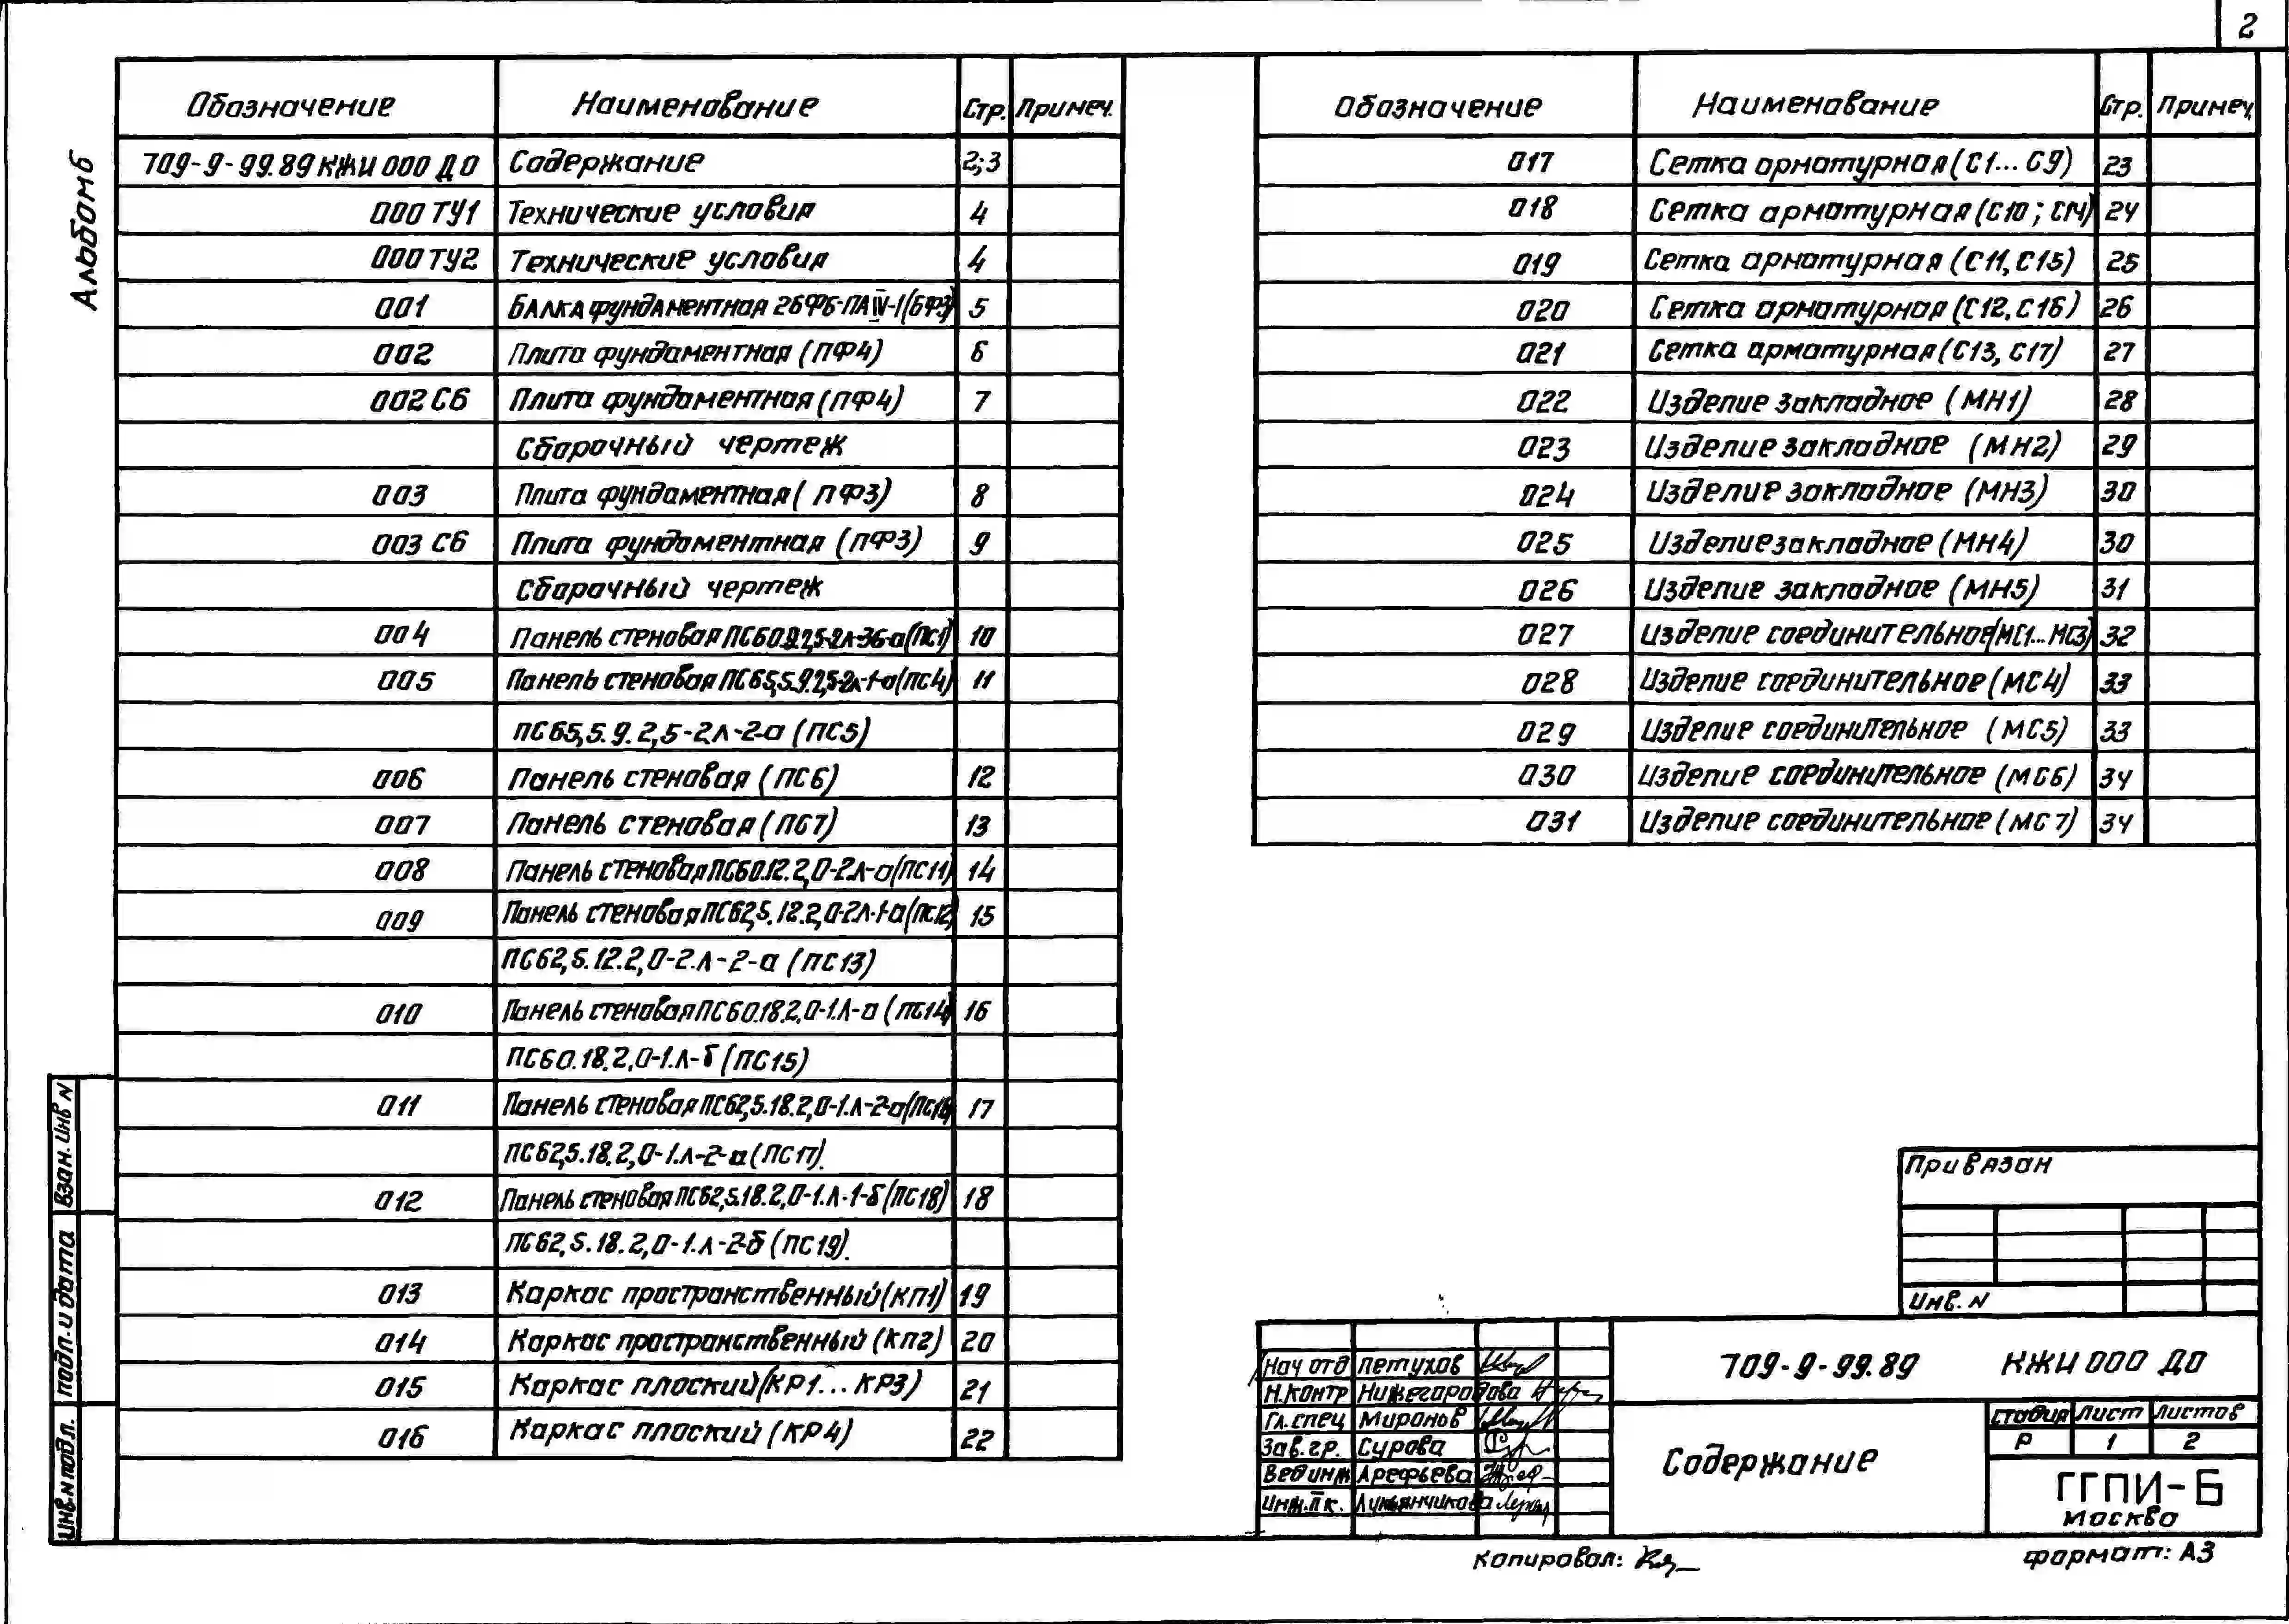 2
Альбом 6
Обозначение Наименование Стр. Примеч.
709-9-99.89 КЖИ 000 ДО Содержание 2;3
000 ТУ1 Технические условия 4
000 ТУ2 Технические условия 4
001 Балка фундаментная 2БФ6-ПАIV-1(БФ3) 5
002 Плита фундаментная (ПФ4) 6
002 СБ Плита фундаментная (ПФ4) 7
Сборочный чертеж
003 Плита фундаментная (ПФ3) 8
003 СБ Плита фундаментная (ПФ3) 9
Сборочный чертеж
004 Панель стеновая ПС60.9.2,5-2л-36-а(ПС1) 10
005 Панель стеновая ПС65,5.9.2,5-2л-1-а(ПС4) 11
ПС65,5.9.2,5-2л-2-а (ПС5)
006 Панель стеновая (ПС6) 12
007 Панель стеновая (ПС7) 13
008 Панель стеновая ПС60.12.2,0-2л-а(ПС11) 14
009 Панель стеновая ПС62,5.12.2,0-2л-1-а(ПС12) 15
ПС62,5.12.2,0-2.л-2-а (ПС13)
010 Панель стеновая ПС60.18.2,0-1.л-а (ПС14) 16
ПС60.18.2,0-1.л-б (ПС15)
011 Панель стеновая ПС62,5.18.2,0-1.л-2-а(ПС16) 17
ПС62,5.18.2,0-1.л-2-а (ПС17).
012 Панель стеновая ПС62,5.18.2,0-1.л-1-б(ПС18) 18
ПС62,5.18.2,0-1.л-2-б (ПС19).
013 Каркас пространственный (КП1) 19
014 Каркас пространственный (КП2) 20
015 Каркас плоский (КР1...КР3) 21
016 Каркас плоский (КР4) 22
Обозначение Наименование Стр. Примеч.
017 Сетка арматурная (С1...С9) 23
018 Сетка арматурная (С10; С14) 24
019 Сетка арматурная (С11, С15) 25
020 Сетка арматурная (С12, С16) 26
021 Сетка арматурная (С13, С17) 27
022 Изделие закладное (МН1) 28
023 Изделие закладное (МН2) 29
024 Изделие закладное (МН3) 30
025 Изделие закладное (МН4) 30
026 Изделие закладное (МН5) 31
027 Изделие соединительное (МС1...МС3) 32
028 Изделие соединительное (МС4) 33
029 Изделие соединительное (МС5) 33
030 Изделие соединительное (МС6) 34
031 Изделие соединительное (МС7) 34
Взан. инв N
Подп. и дата
Инв. N подл.
Привязан
Инв. N
Нач отд Петухов
Н.контр Нижегородова
Гл. спец Миронов
Зав. гр. Сурова
Вед инж Арефьева
Инж. II к. Лукьянчикова
709-9-99.89 КЖИ 000 ДО
Содержание
Стадия Лист Листов
Р 1 2
ГГПИ-6
Москва
Копировал:
формат: А3